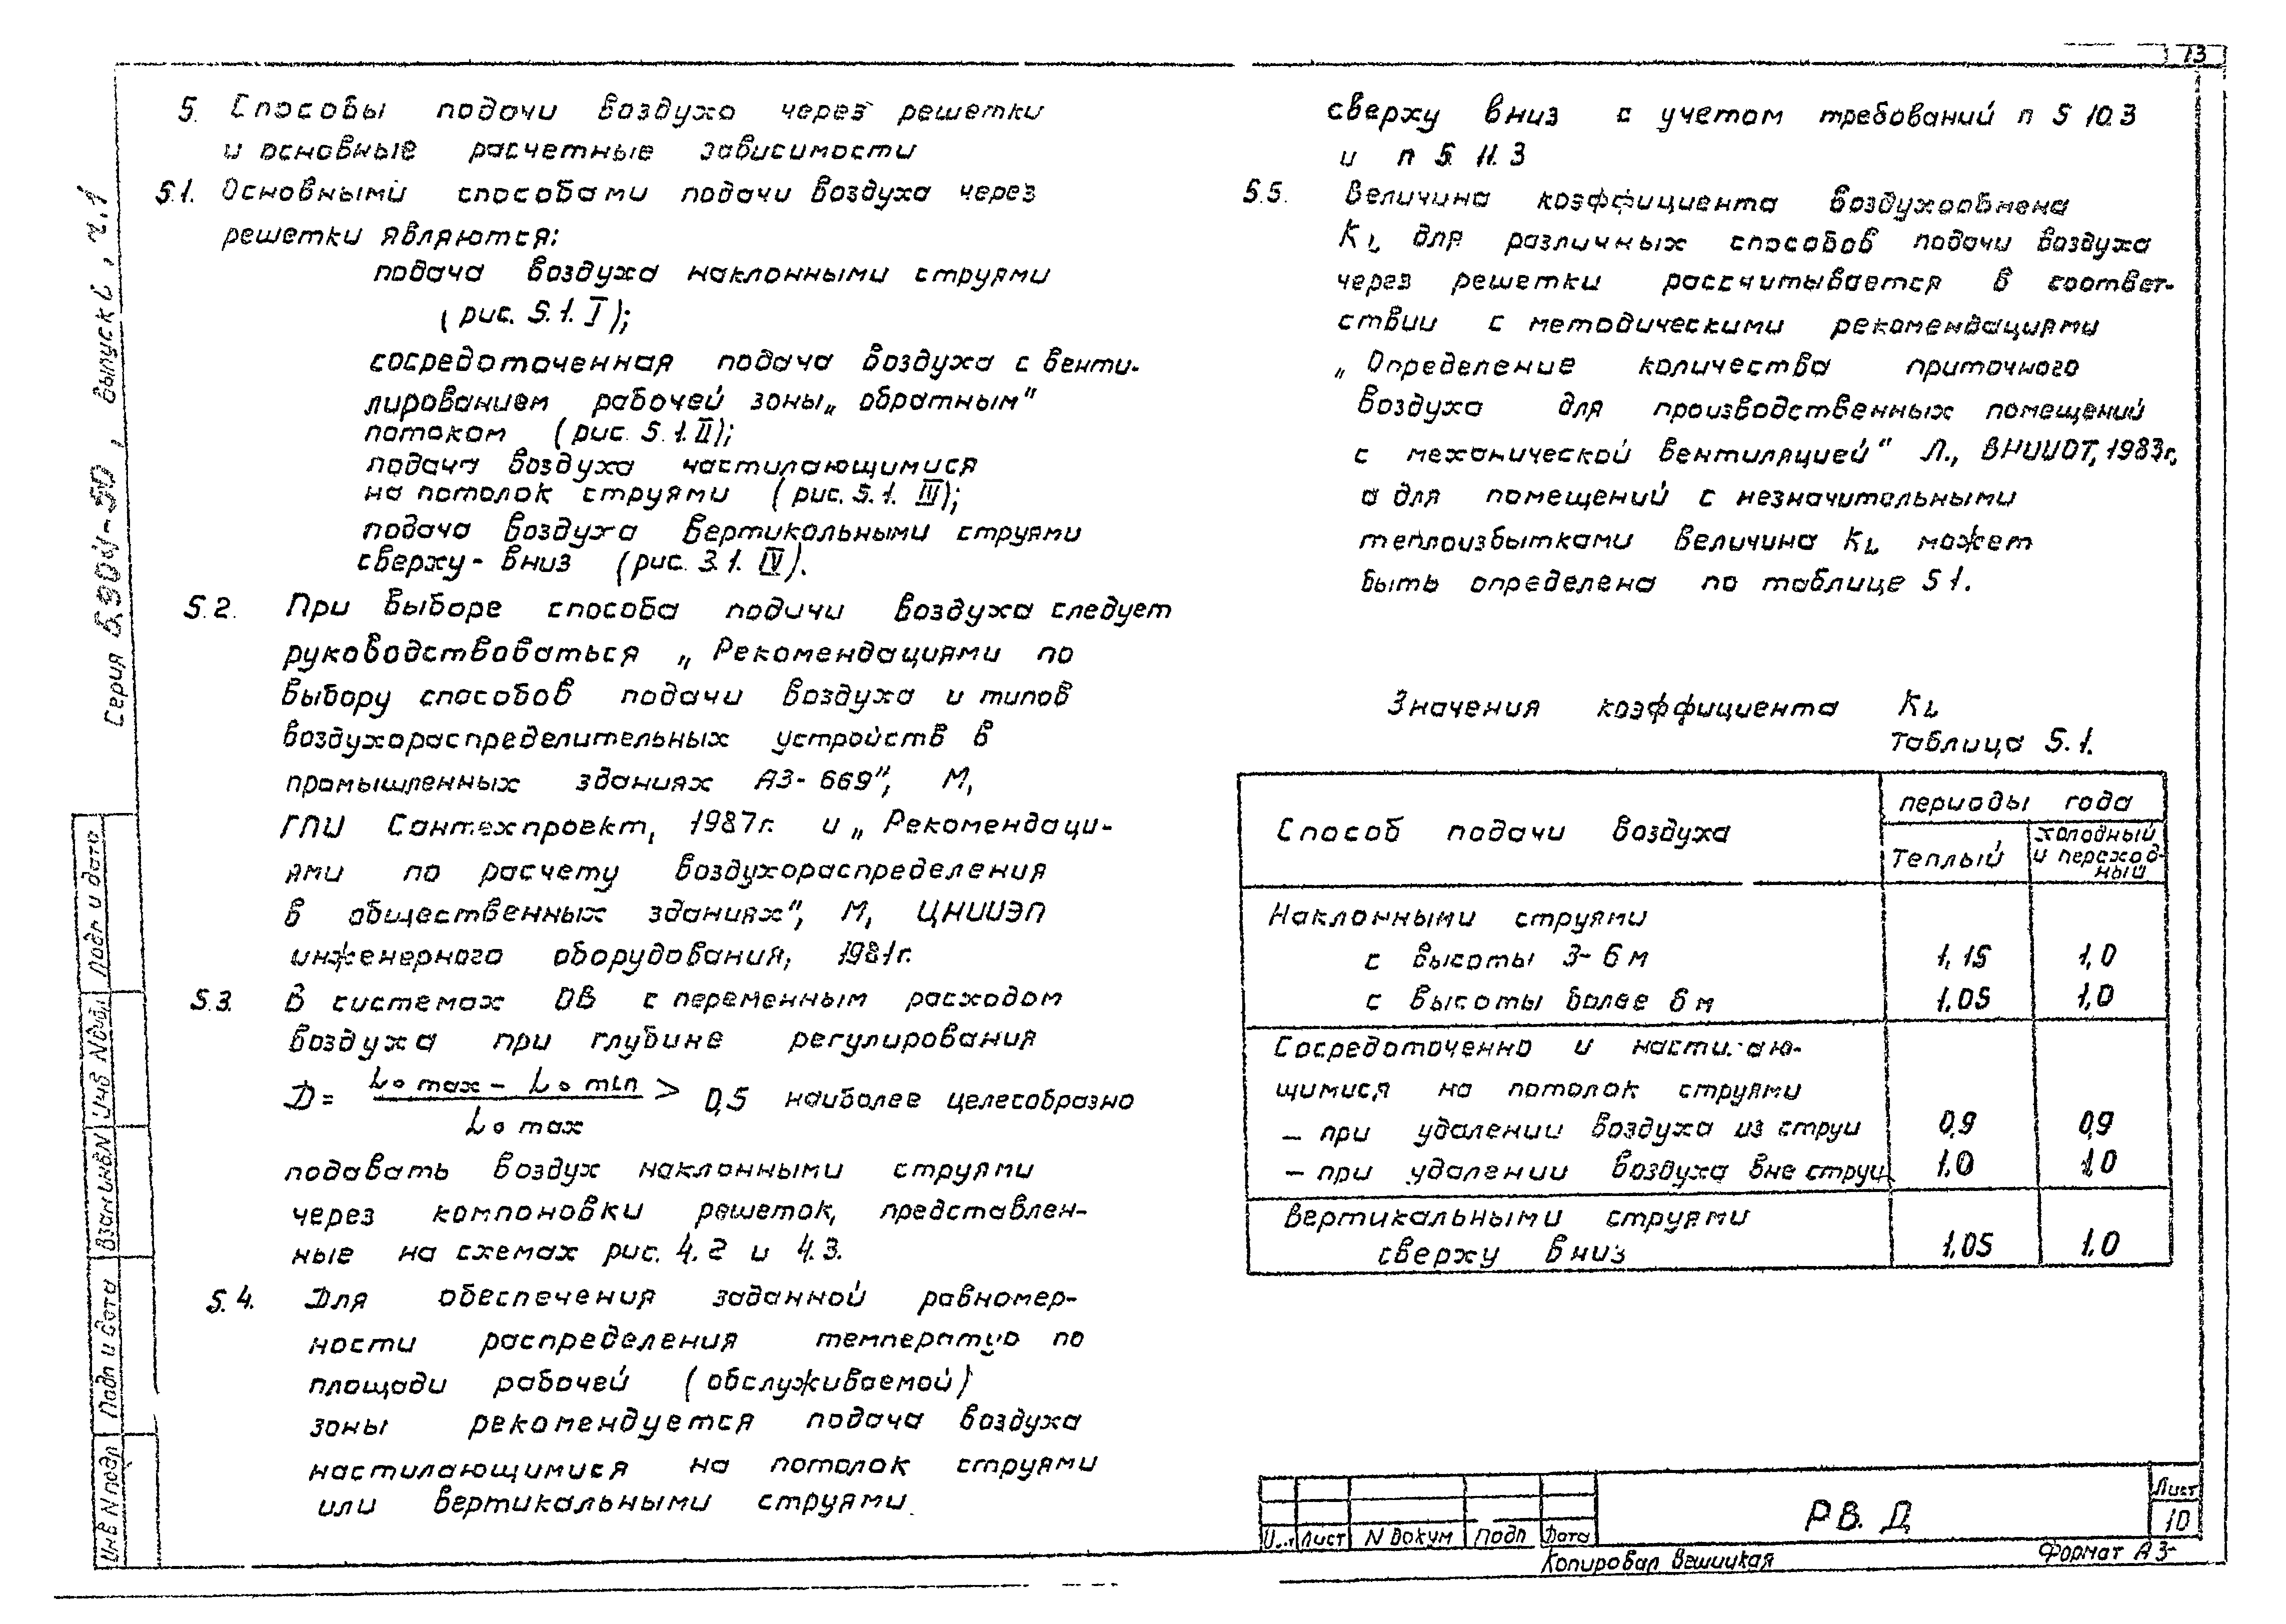 13
5. Способы подачи воздуха через решетки
и основные расчетные зависимости
5.1. Основными способами подачи воздуха через
решетки являются:
подача воздуха наклонными струями
(рис. 5.1. I);
сосредоточенная подача воздуха с венти-
лированием рабочей зоны „обратным"
потоком (рис. 5.1. II);
подача воздуха настилающимися
на потолок струями (рис. 5.1. III);
подача воздуха вертикальными струями
сверху - вниз (рис. 3.1. IV).
5.2. При выборе способа подачи воздуха следует
руководствоваться „Рекомендациями по
выбору способов подачи воздуха и типов
воздухораспределительных устройств в
промышленных зданиях А3-669", М,
ГПИ Сантехпроект, 1987г. и „Рекомендаци-
ями по расчету воздухораспределения
в общественных зданиях", М, ЦНИИЭП
инженерного оборудования, 1981г.
5.3. В системах ОВ с переменным расходом
воздуха при глубине регулирования
D = (L₀ max - L₀ min) / L₀ max > 0,5 наиболее целесобразно
подавать воздух наклонными струями
через компоновки решеток, представлен-
ные на схемах рис. 4.2 и 4.3.
5.4. Для обеспечения заданной равномер-
ности распределения температур по
площади рабочей (обслуживаемой)
зоны рекомендуется подача воздуха
настилающимися на потолок струями
или вертикальными струями
сверху вниз с учетом требований п 5 10.3
и п 5. 11.3
5.5. Величина коэффициента воздухообмена
KL для различных способов подачи воздуха
через решетки рассчитывается в соответ-
ствии с методическими рекомендациями
„Определение количества приточного
воздуха для производственных помещений
с механической вентиляцией" Л., ВНИИОТ, 1983г,
а для помещений с незначительными
теплоизбытками величина KL может
быть определена по таблице 5 1.
Значения коэффициента KL
Таблица 5.1.
Способ подачи воздуха периоды года
Теплый холодный и переход-ный
Наклонными струями
с высоты 3-6 м 1,15 1,0
с высоты более 6 м 1.05 1,0
Сосредоточенно и настилаю-
щимися на потолок струями
- при удалении воздуха из струи 0,9 0,9
- при удалении воздуха вне струи 1.0 1.0
Вертикальными струями
сверху вниз 1.05 1.0
Серия 5.904-50, выпуск 0, ч.1
Подп и дата
Инв N дубл
Взам инв N
Подп и дата
Инв N подл
Лист N докум Подп Дата
РВ. Д
Лист
10
Копировал Вешицкая
Формат А3